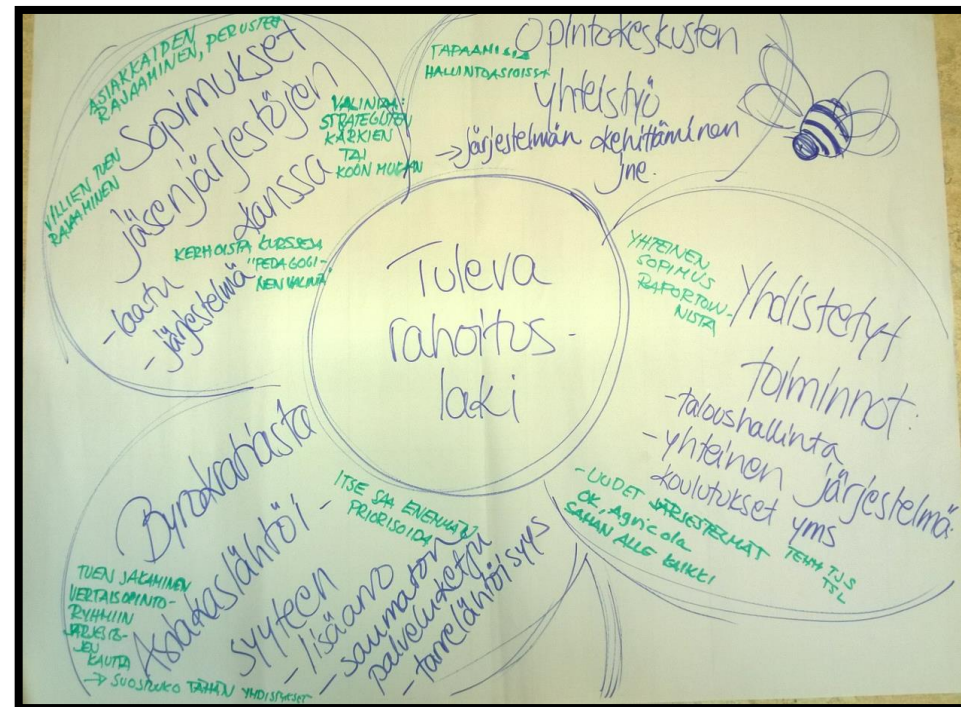 Tuleva
rahoitus-
laki
ASIAKKAIDEN
RAJAAMINEN, PERUSTEET
Sopimukset
jäsenjärjestöjen
kanssa
- laatu
- järjestelmä
VILLIEN TUEN
RAJAAMINEN
VALINTA:
STRATEGISTEN
KÄRKIEN
TAI
KOON MUKAAN
KERHOISTA KURSSEJA
"PEDAGOGI-
NEN VALINTA"
TAPAAMISIA
HALLINTOASIOISSA
Opintokeskusten
yhteistyö
→ järjestelmän kehittäminen
jne.
YHTEINEN
SOPIMUS
RAPORTOIN-
NISTA
Yhdistetyt
toiminnot:
- taloushallinta
- yhteinen järjestelmä
koulutukset yms
- UUDET JÄRJESTELMÄT
OK, Agricola
SAMAN ALLE KAIKKI
TJS
TSL
Byrokratiasta
Asiakaslähtöi-
syyteen
- lisäarvo
- saumaton
palveluketju
- tarvelähtöisyys
ITSE SAA ENEMMÄN
PRIORISOIDA
TUEN JAKAMINEN
VERTAISOPINTO-
RYHMIIN
JÄRJESTÖ-
JEN
KAUTTA
→ SUOSTUUKO TÄHÄN YHDISTYKSET